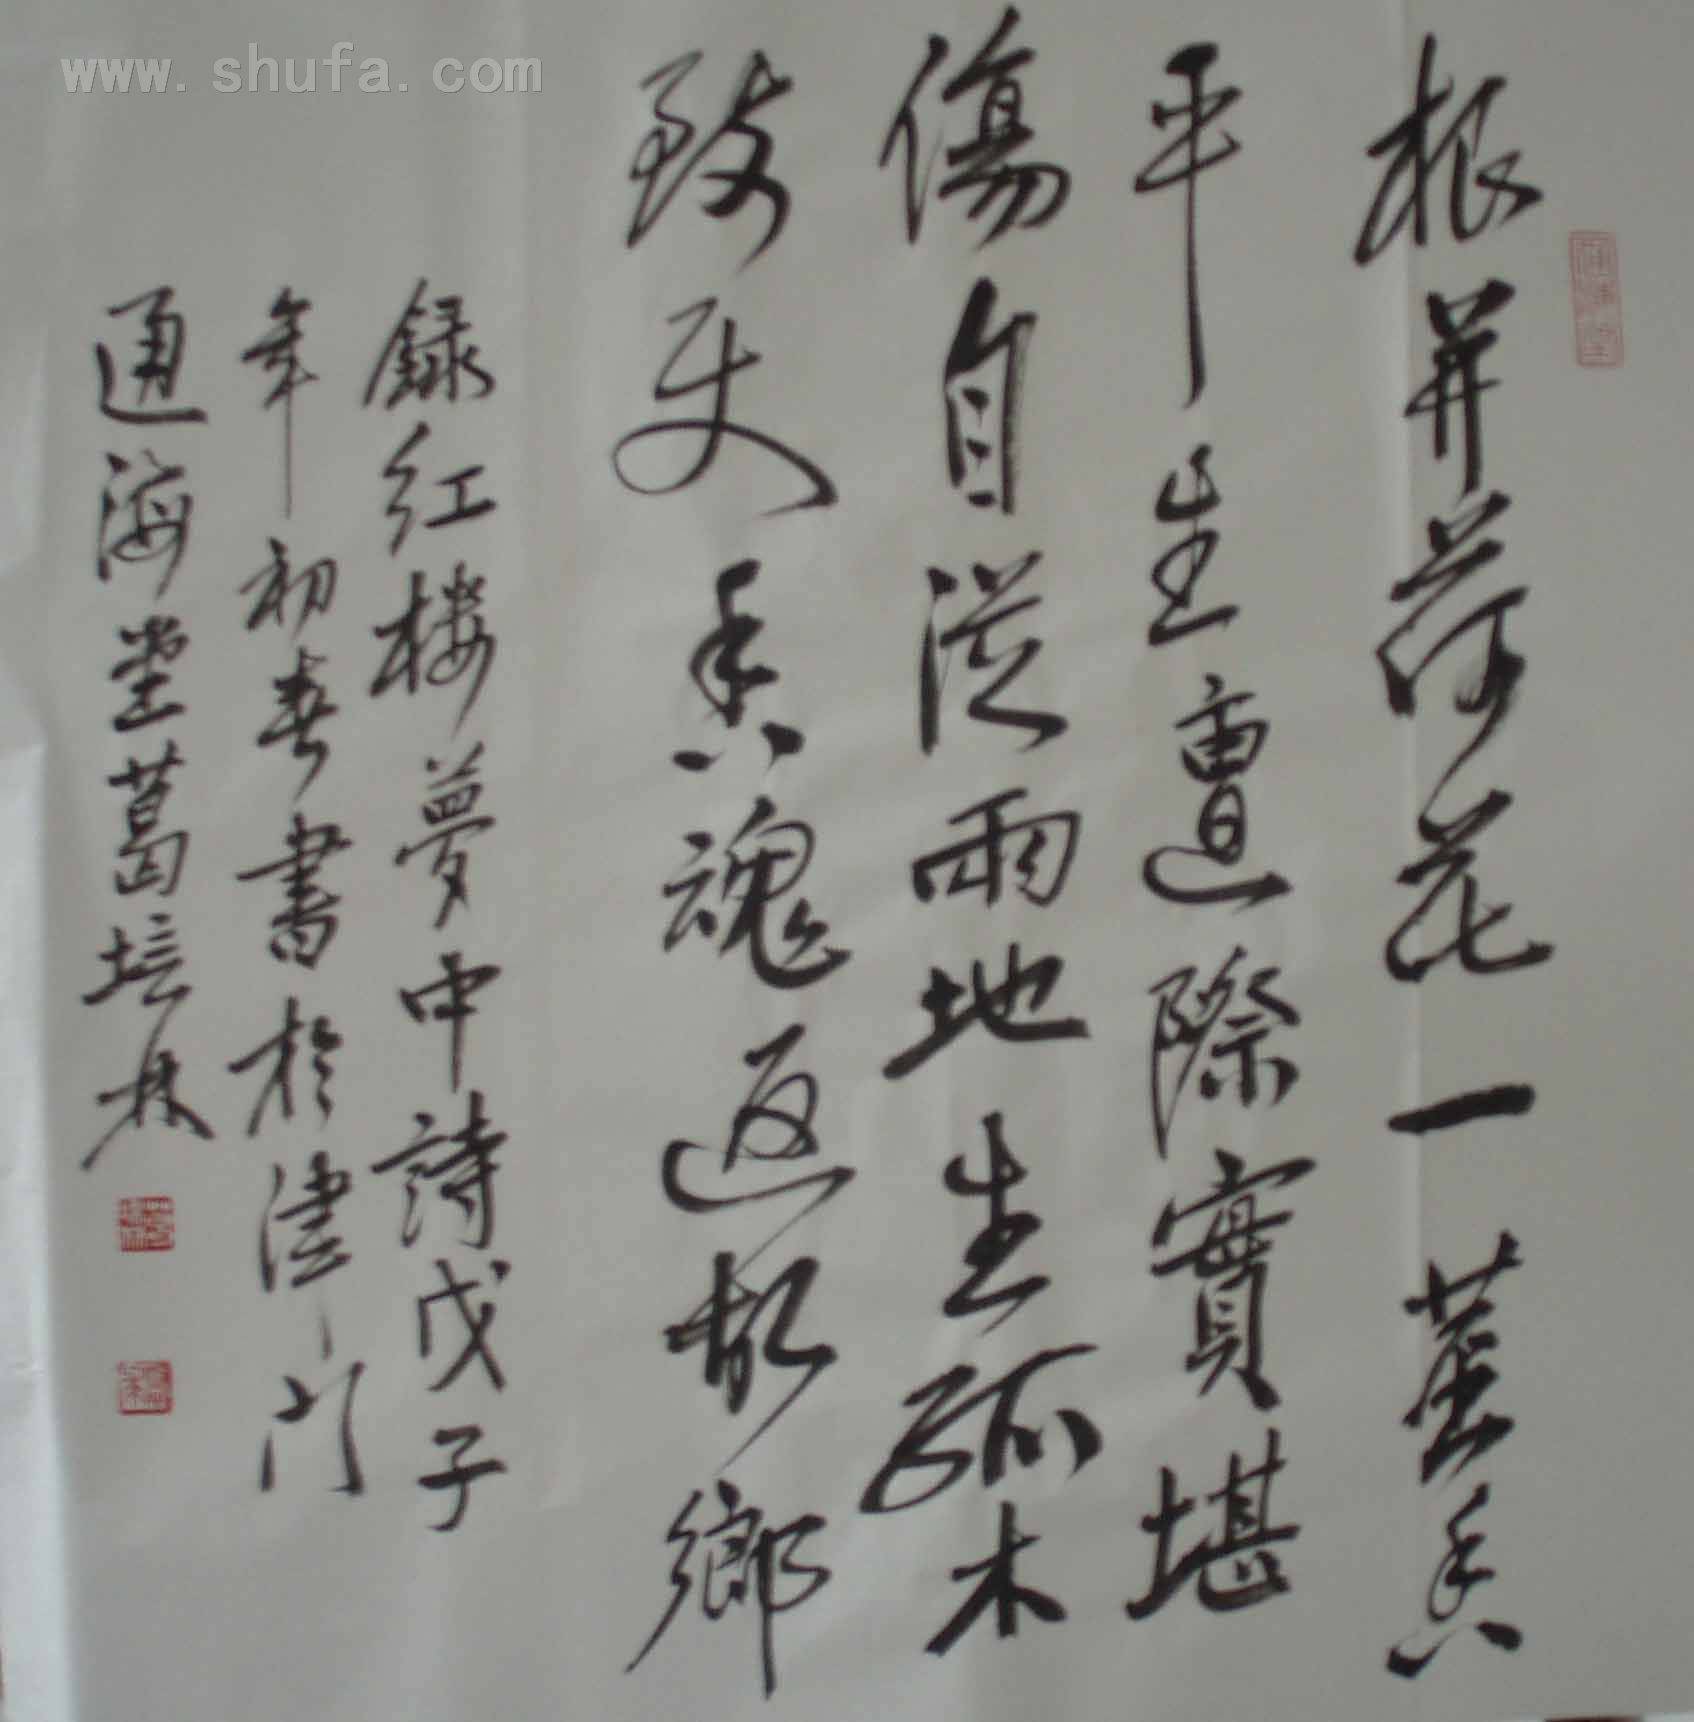 www.shufa.com
根并荷花一茎香
平生遭際實堪
傷自從兩地生孤木
致使香魂返故鄉
録红楼夢中詩戊子
年初春書於津门
通海堂葛培林